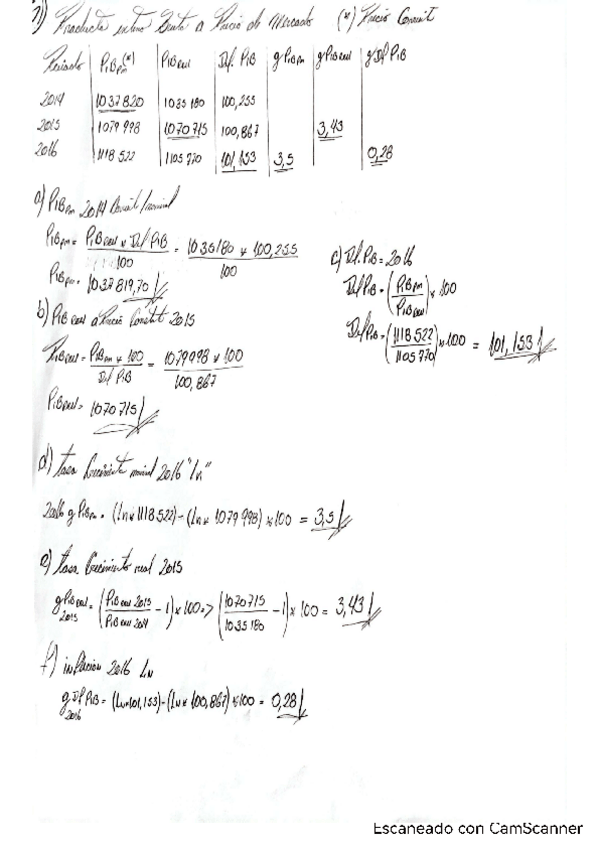 1) Producto interno Bruto a Precio de Mercado (*) Precio Corrient
Periodo PiBpm(*) PiBreal Def. PiB gPiBpm gPiBreal gDef PiB
2014 1037820 1035180 100,255
2015 1079998 1070715 100,867 3,43
2016 1118522 1105770 101,153 3,5 0,28
a) PiBpm 2014 /nominal
PiBpm = PiBreal x Def PiB / 100 = 1035180 x 100,255 / 100
PiBpm = 1037819,70
b) PiB real a Precio Constt 2015
PiBreal = PiBpm x 100 / Def PiB = 1079998 x 100 / 100,867
PiBreal = 1070715
c) Def. PiB = 2016
Def PiB = (PiBpm / PiBreal) x 100
Def PiB = (1118522 / 1105770) x 100 = 101,153
d) tasa Crecimiento nominal 2016 "Ln"
2016 gPiBpm = (Ln x 1118522) - (Ln x 1079998) x 100 = 3,5
e) tasa Crecimiento real 2015
gPiBreal 2015 = (PiBreal 2015 / PiBreal 2014 - 1) x 100 => (1070715 / 1035180 - 1) x 100 = 3,43
f) inflacion 2016 Ln
gDef PiB 2016 = (Ln x 101,153) - (Ln x 100,867) x 100 = 0,28
Escaneado con CamScanner